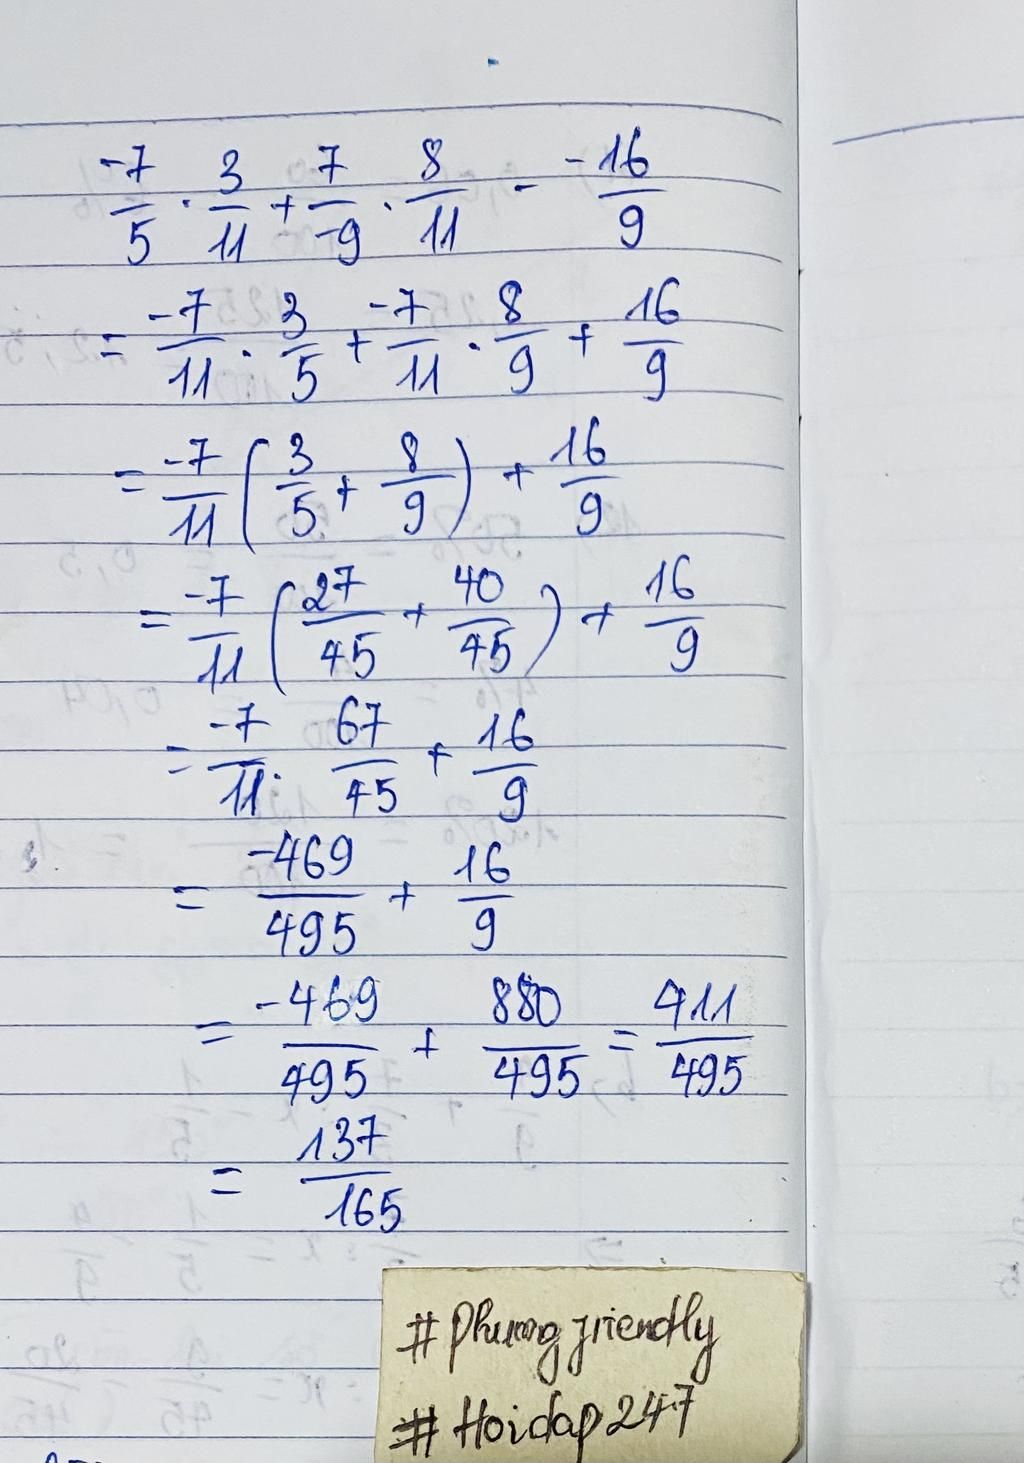 -7/5 · 3/11 + 7/-9 · 8/11 - -16/9
= -7/11 · 3/5 + -7/11 · 8/9 + 16/9
= -7/11 ( 3/5 + 8/9 ) + 16/9
= -7/11 ( 27/45 + 40/45 ) + 16/9
= -7/11 · 67/45 + 16/9
= -469/495 + 16/9
= -469/495 + 880/495 = 411/495
= 137/165
#Phuongfriendly
#Hoidap247